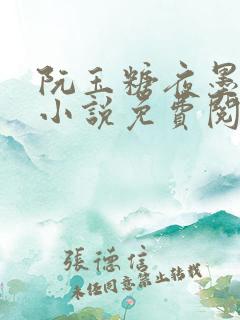 阮玉糖夜墨
小說免費閱
張德信
未经同意禁止转载